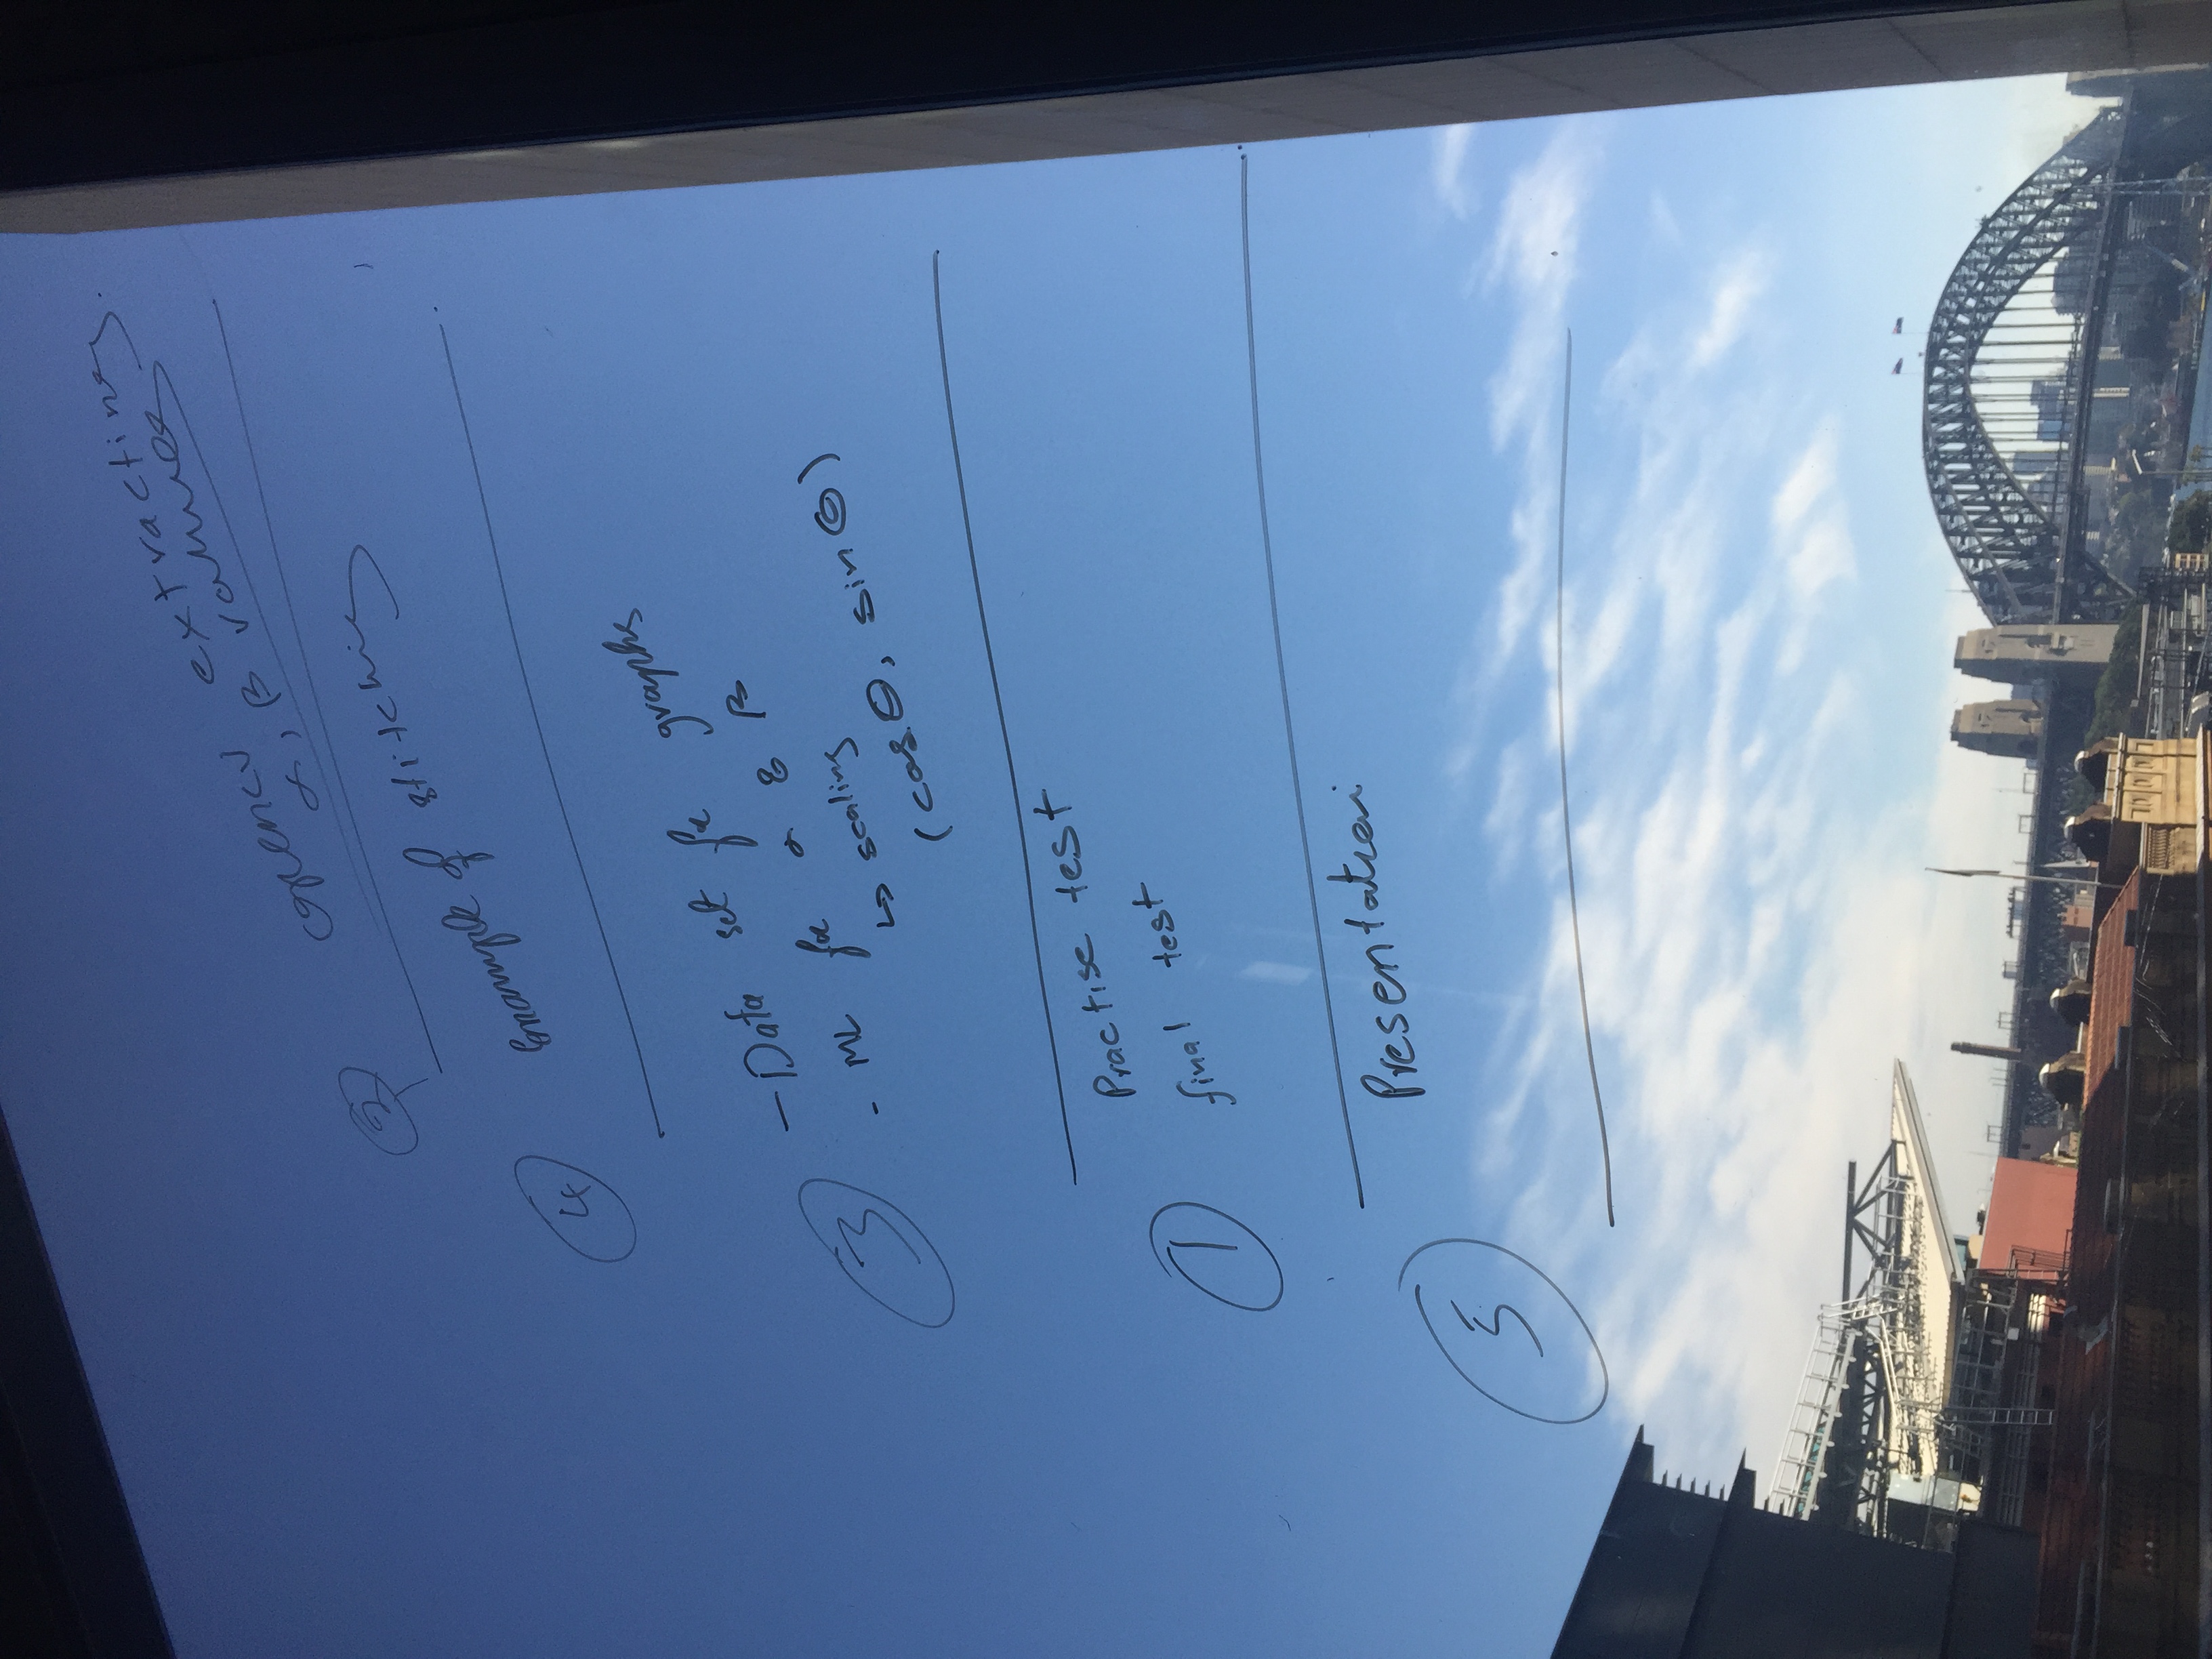 ② opencv extracting
α, β values
④ Example of stitching
- Data set for graphs
③ - ML for α & β
↳ scaling
(cos θ, sin θ)
Practise test
① final test
Presentation
⑤